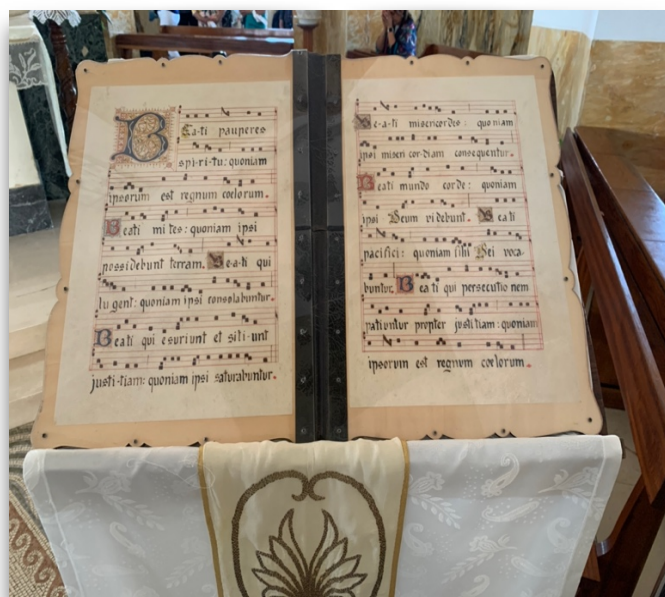 Bea-ti pauperes
spi-ri-tu: quoniam
ipsorum est regnum coelorum.
Beati mi tes: quoniam ipsi
possidebunt terram. Be-a-ti qui
lu gent: quoniam ipsi consolabuntur.
Beati qui esuriunt et siti-unt
justi-tiam: quoniam ipsi saturabuntur.
Be-a-ti misericordes: quoniam
ipsi miseri cor-diam consequentur.
Beati mundo corde: quoniam
ipsi Deum videbunt. Beati
pacifici: quoniam filii Dei voca-
buntur. Bea ti qui persecutio nem
patiuntur propter justitiam: quoniam
ipsorum est regnum coelorum.